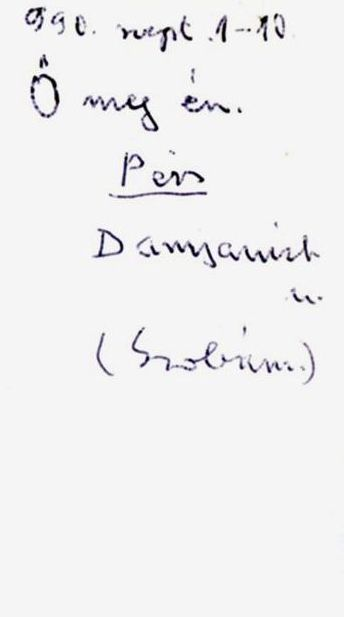 990. szept. 1–10.
Ő meg én.
Pécs
Damjanich
u.
(Szobám.)